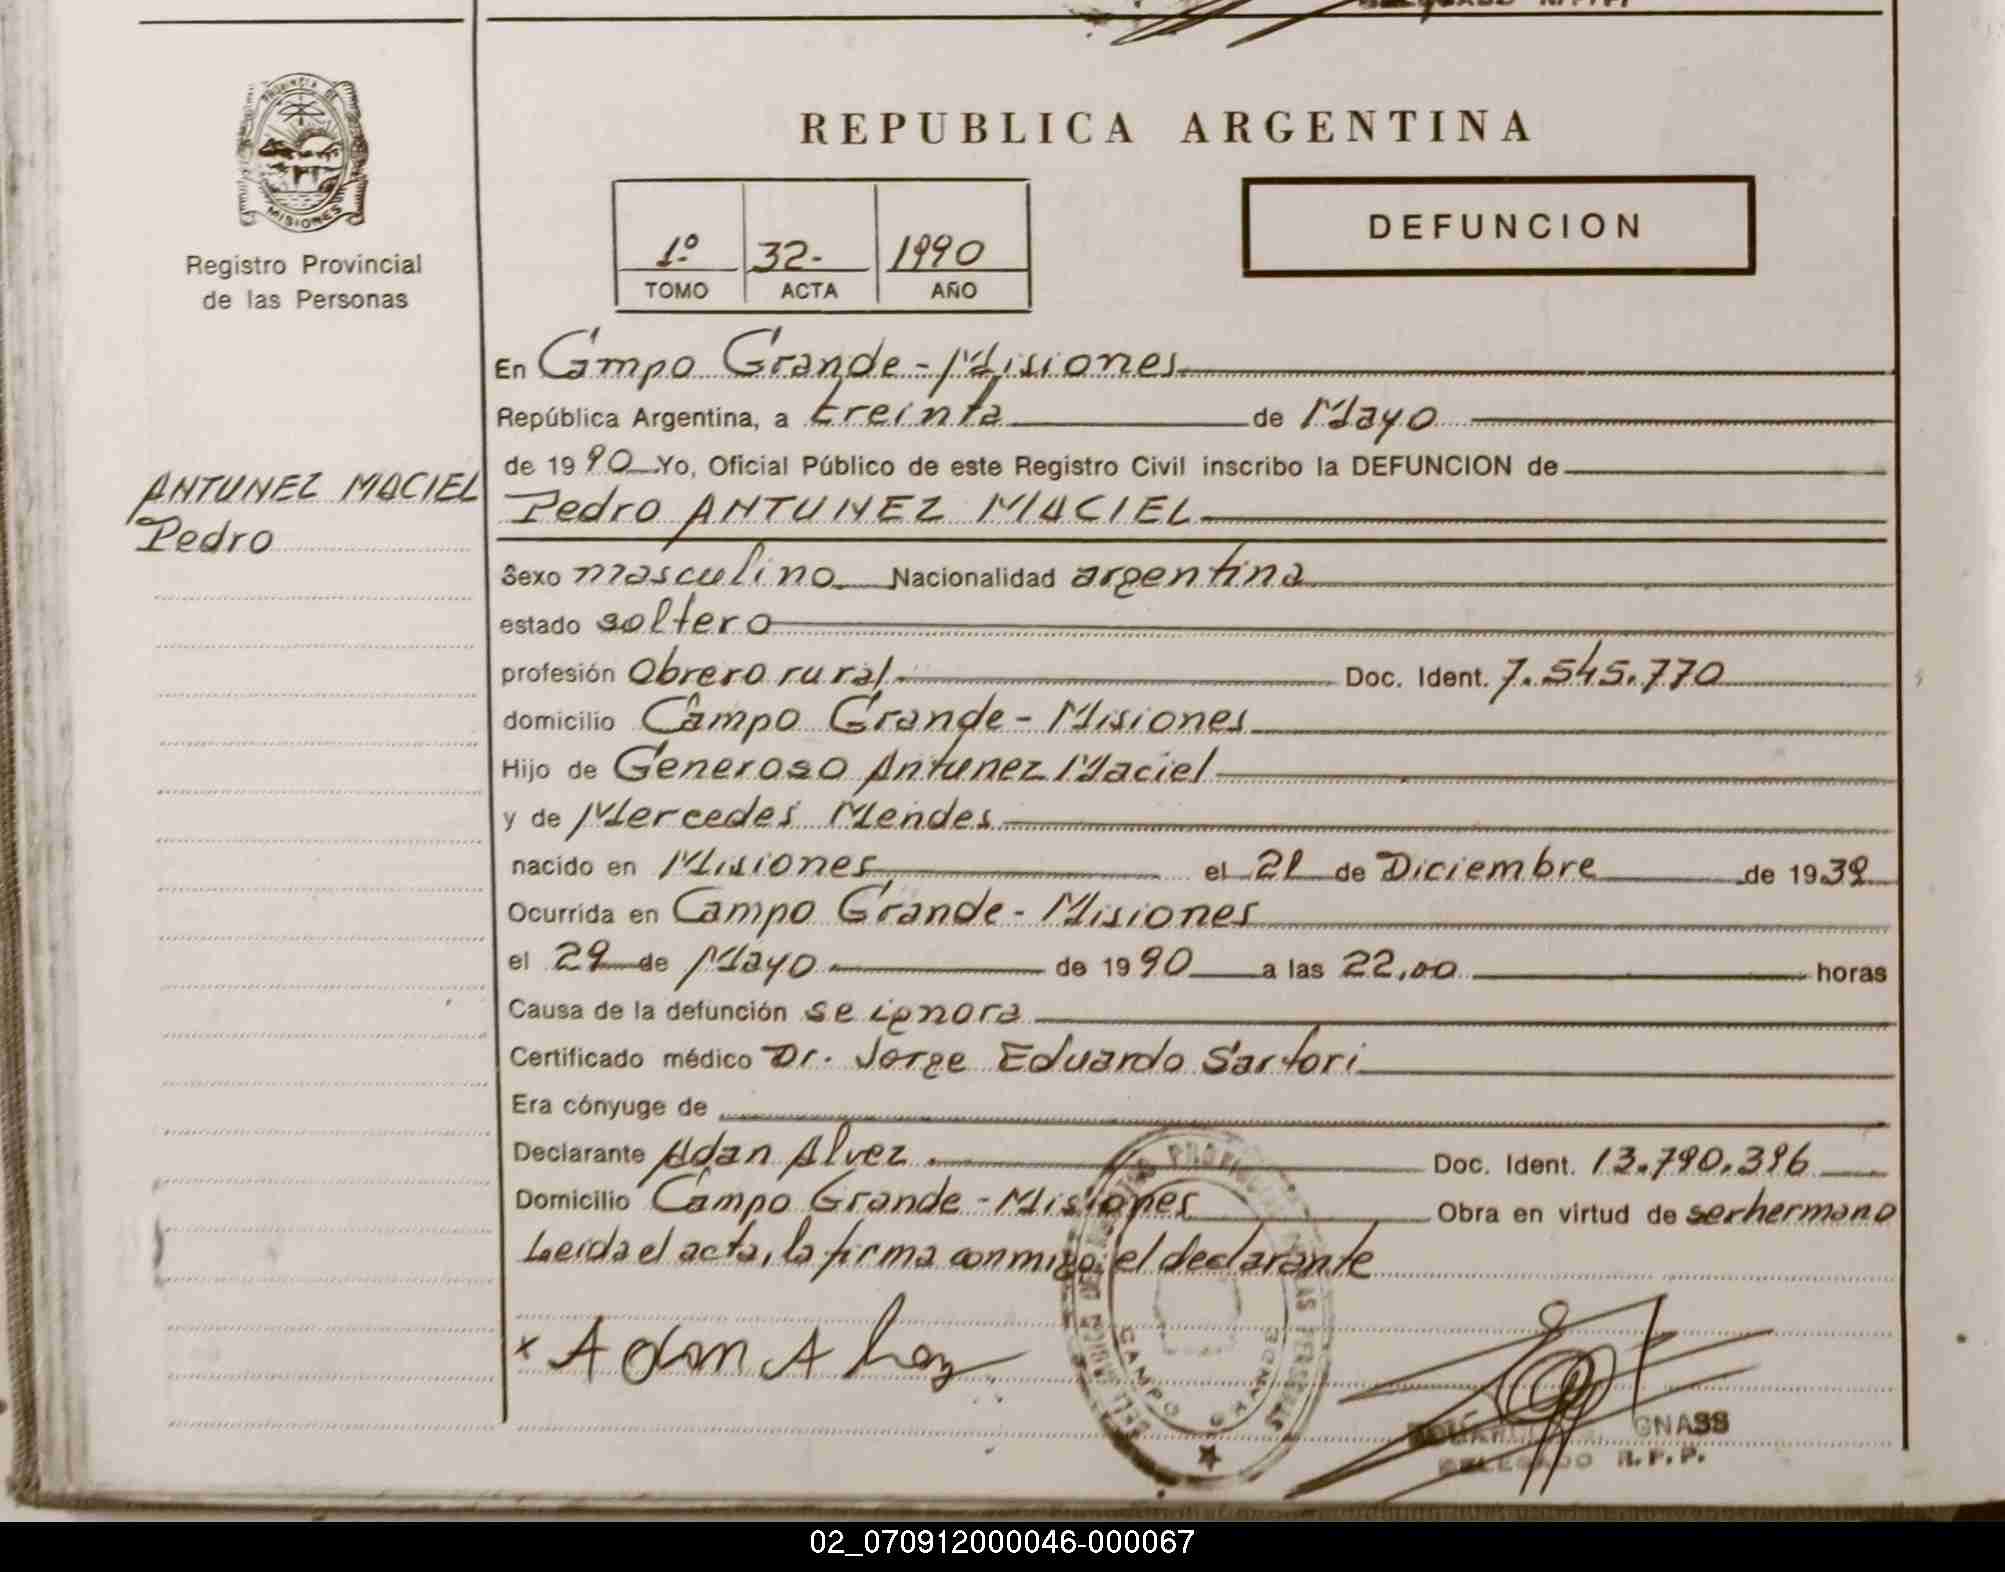 REPUBLICA ARGENTINA
PROVINCIA DE
MISIONES
Registro Provincial
de las Personas
DEFUNCION
1º 32- 1990
TOMO ACTA AÑO
En Campo Grande - Misiones
República Argentina, a treinta de Mayo
de 1990 Yo, Oficial Público de este Registro Civil inscribo la DEFUNCION de
ANTUNEZ MACIEL
Pedro
Pedro ANTUNEZ MACIEL
Sexo masculino Nacionalidad argentina
estado soltero
profesión Obrero rural Doc. Ident. 7.545.770
domicilio Campo Grande - Misiones
Hijo de Generoso Antunez Maciel
y de Mercedes Mendes
nacido en Misiones el 21 de Diciembre de 1939
Ocurrida en Campo Grande - Misiones
el 29 de Mayo de 1990 a las 22,00 horas
Causa de la defunción se ignora
Certificado médico Dr. Jorge Eduardo Sartori
Era cónyuge de
Declarante Adan Alvez Doc. Ident. 13.790.396
Domicilio Campo Grande - Misiones Obra en virtud de ser hermano
Leida el acta, la firma conmigo el declarante
x Adan A
CAMPO GRANDE
GNASS
DELEGADO R.P.P.
02_070912000046-000067